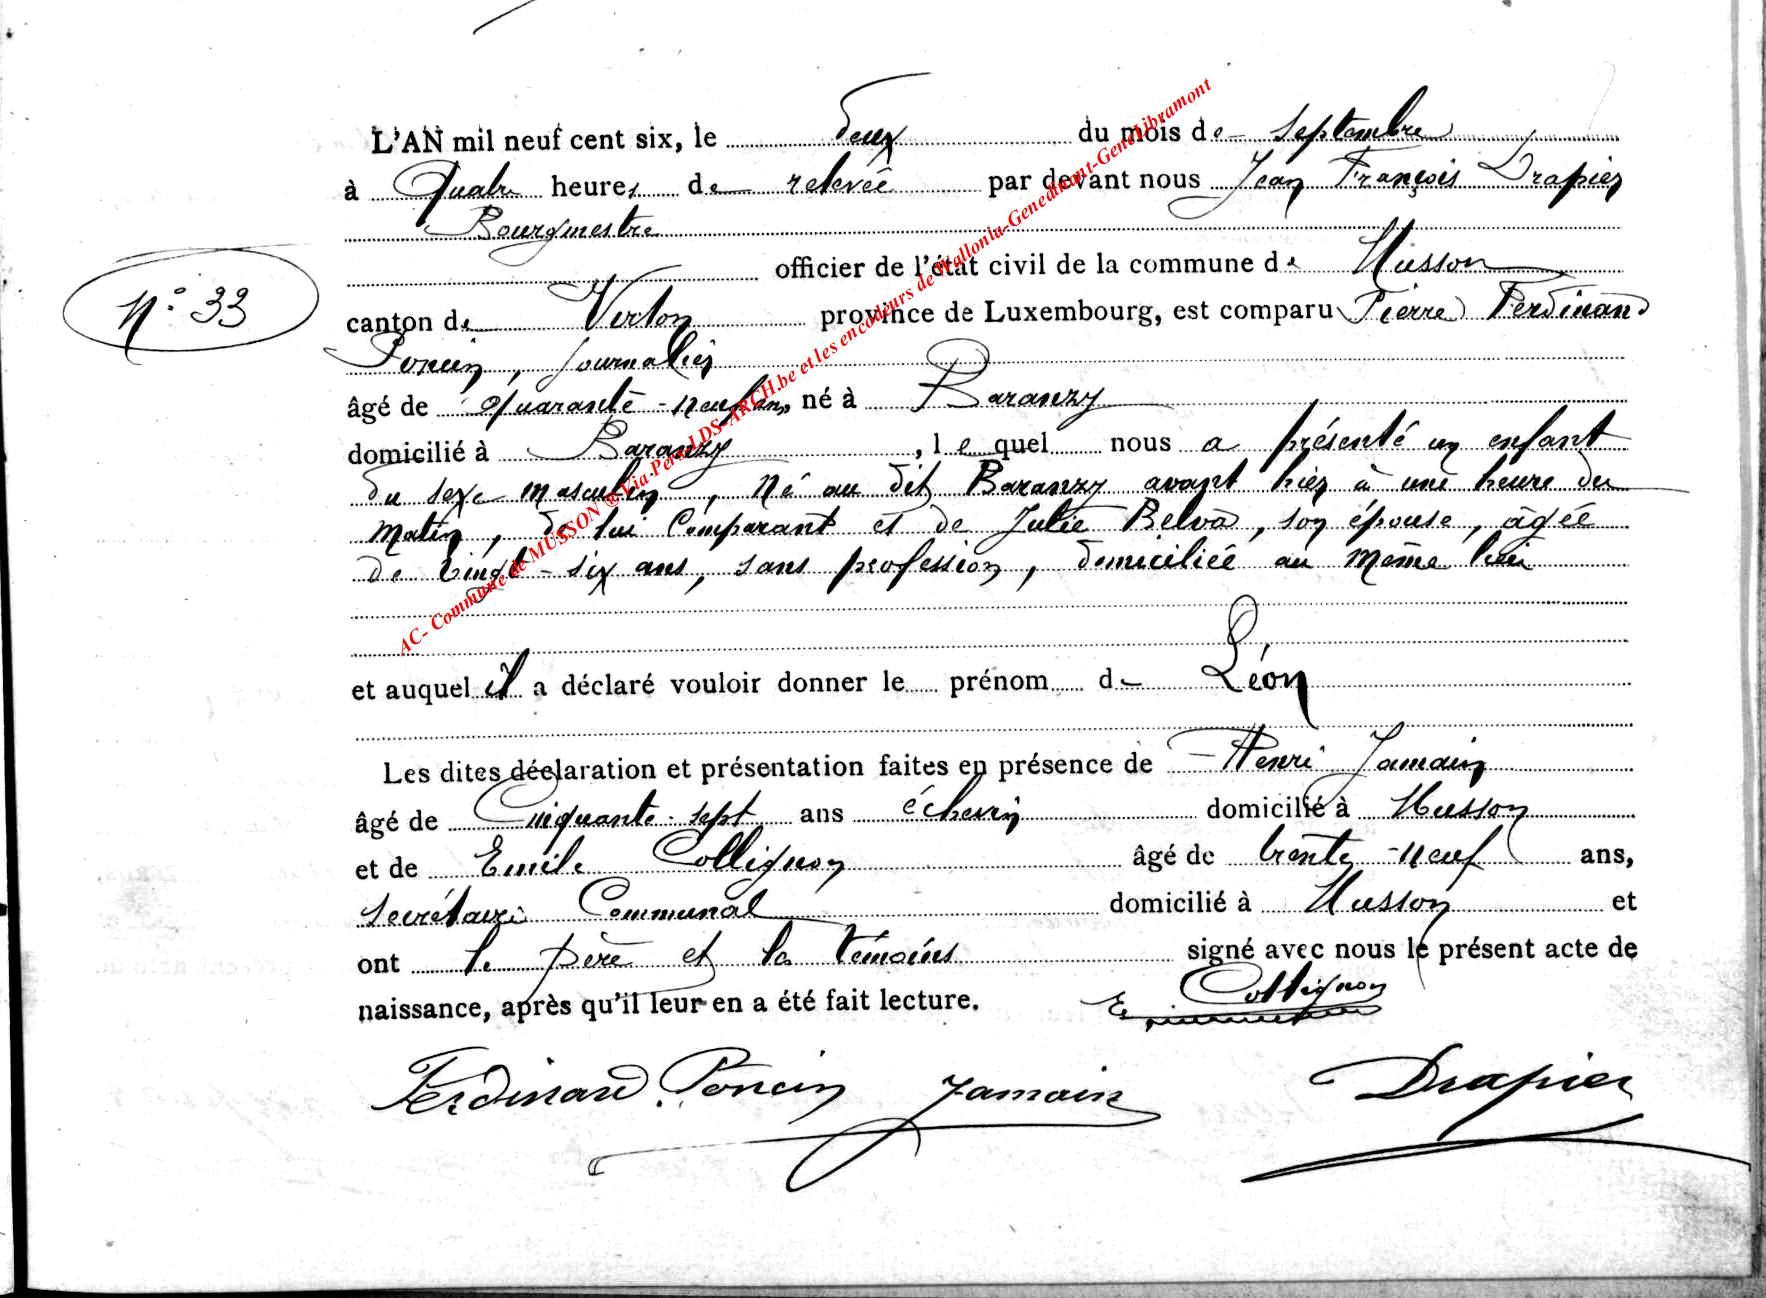 L'AN mil neuf cent six, le deux du mois de septembre
à Quatre heures de relevée par devant nous Jean François Drapier
Bourgmestre
officier de l'état civil de la commune de Musson
N° 33
canton de Virton province de Luxembourg, est comparu Pierre Ferdinand
Poncin, journalier
âgé de Quarante-neuf ans, né à Baranzy
domicilié à Baranzy, lequel nous a présenté un enfant
du sexe masculin, né au dit Baranzy avant hier à une heure du
matin, de lui Comparant et de Julie Belva, son épouse, âgée
de vingt-six ans, sans profession, domiciliée au même lieu
et auquel il a déclaré vouloir donner le prénom de Léon
Les dites déclaration et présentation faites en présence de Henri Jamain
âgé de Cinquante-sept ans échevin domicilié à Musson
et de Emile Collignon âgé de trente-neuf ans,
secrétaire Communal domicilié à Musson et
ont le père et les témoins signé avec nous le présent acte de
naissance, après qu'il leur en a été fait lecture.
E. Collignon
Ferdinand Poncin Jamain Drapier
AC- Commune de MUSSON ® Via Perso LDS-ARCH.be et les encodeurs de Wallonia-Genedinant-GeneLibramont